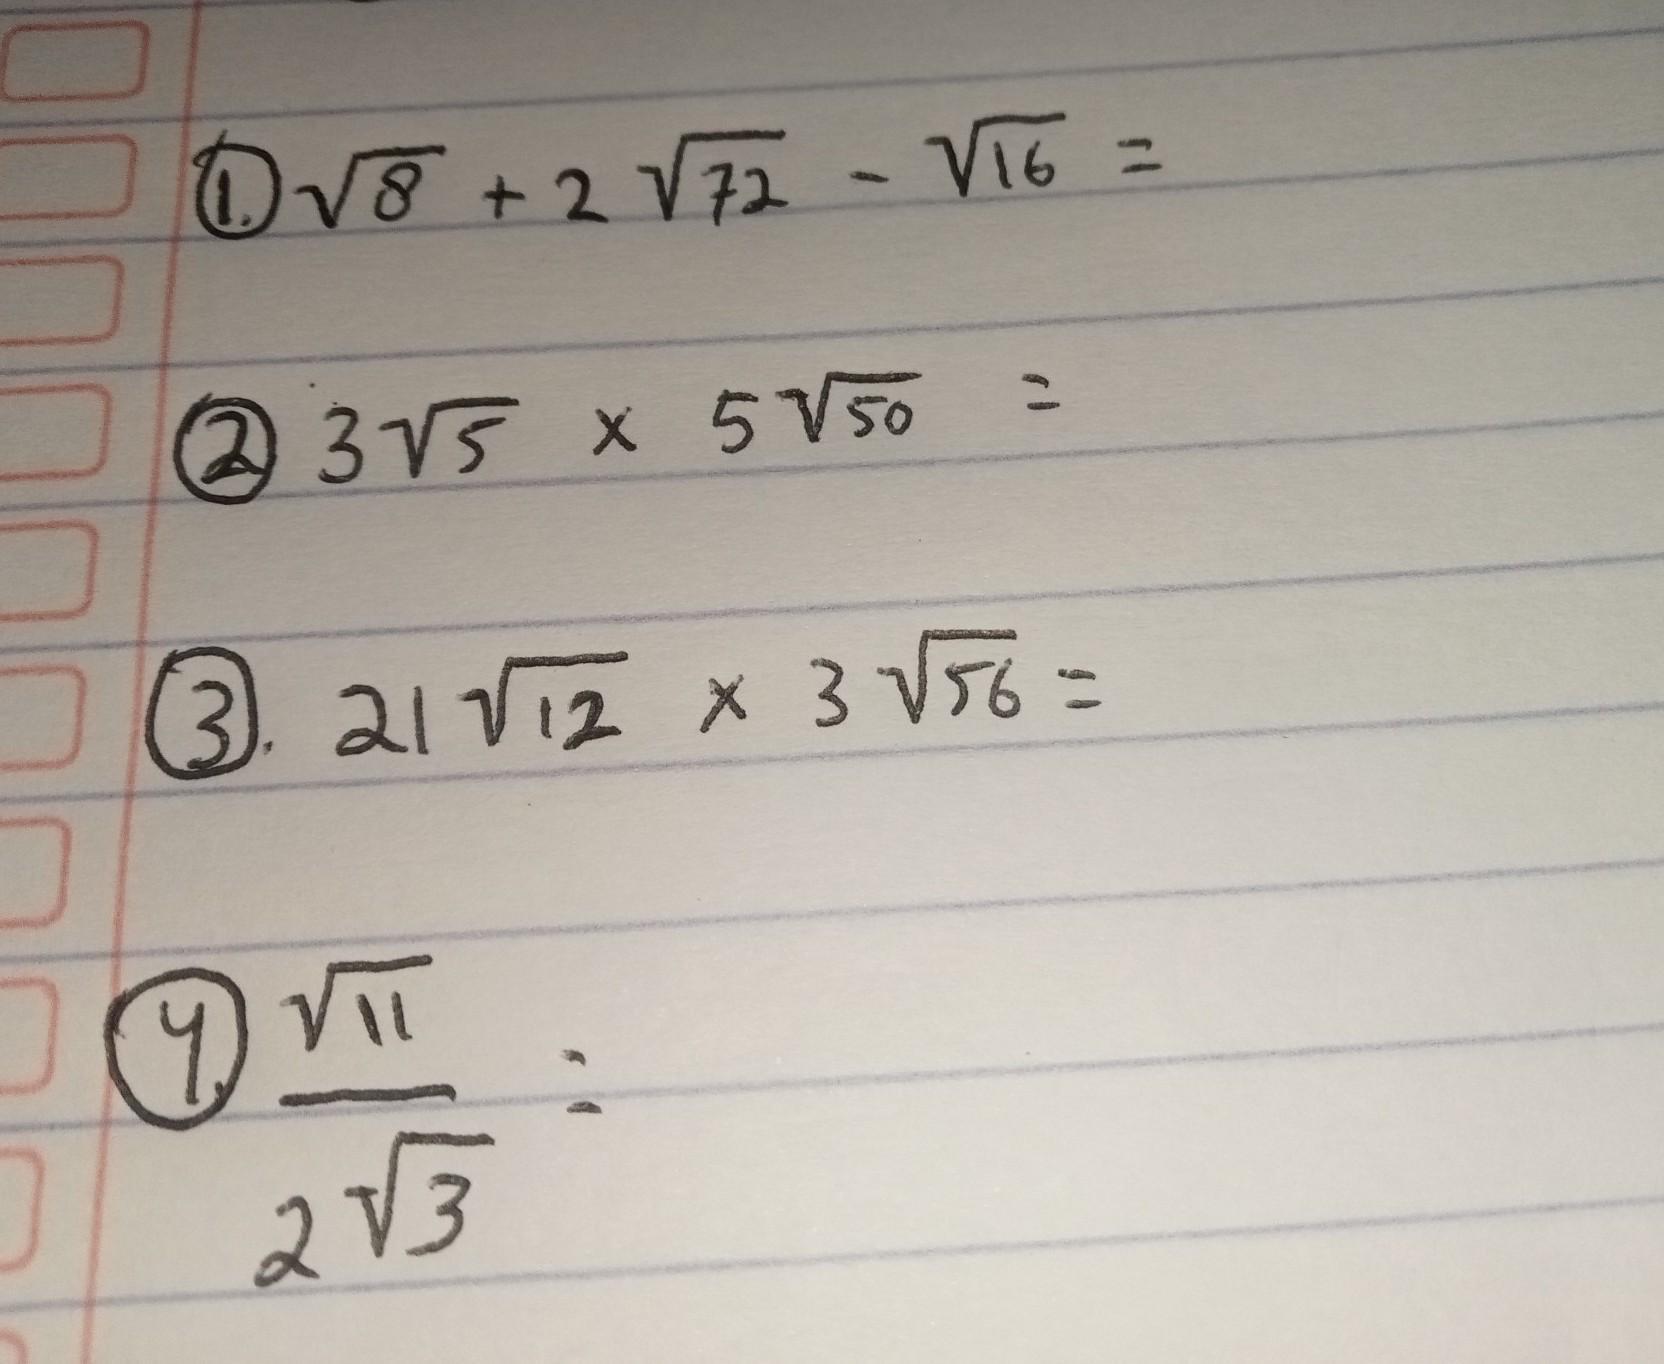 ①. √8 + 2√72 - √16 =
② 3√5 x 5√50 =
③. 21√12 x 3√56 =
④. √11
=
2√3